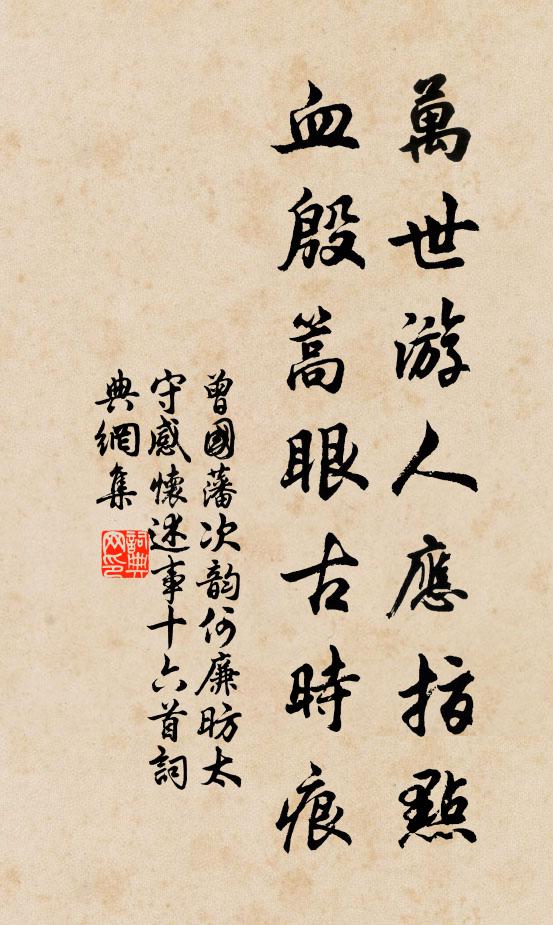 萬世游人應指點
血殷蒿眼古時痕
曾國藩次韵何廉昉太
守感懷述事十六首詞
典網集
詞典網印